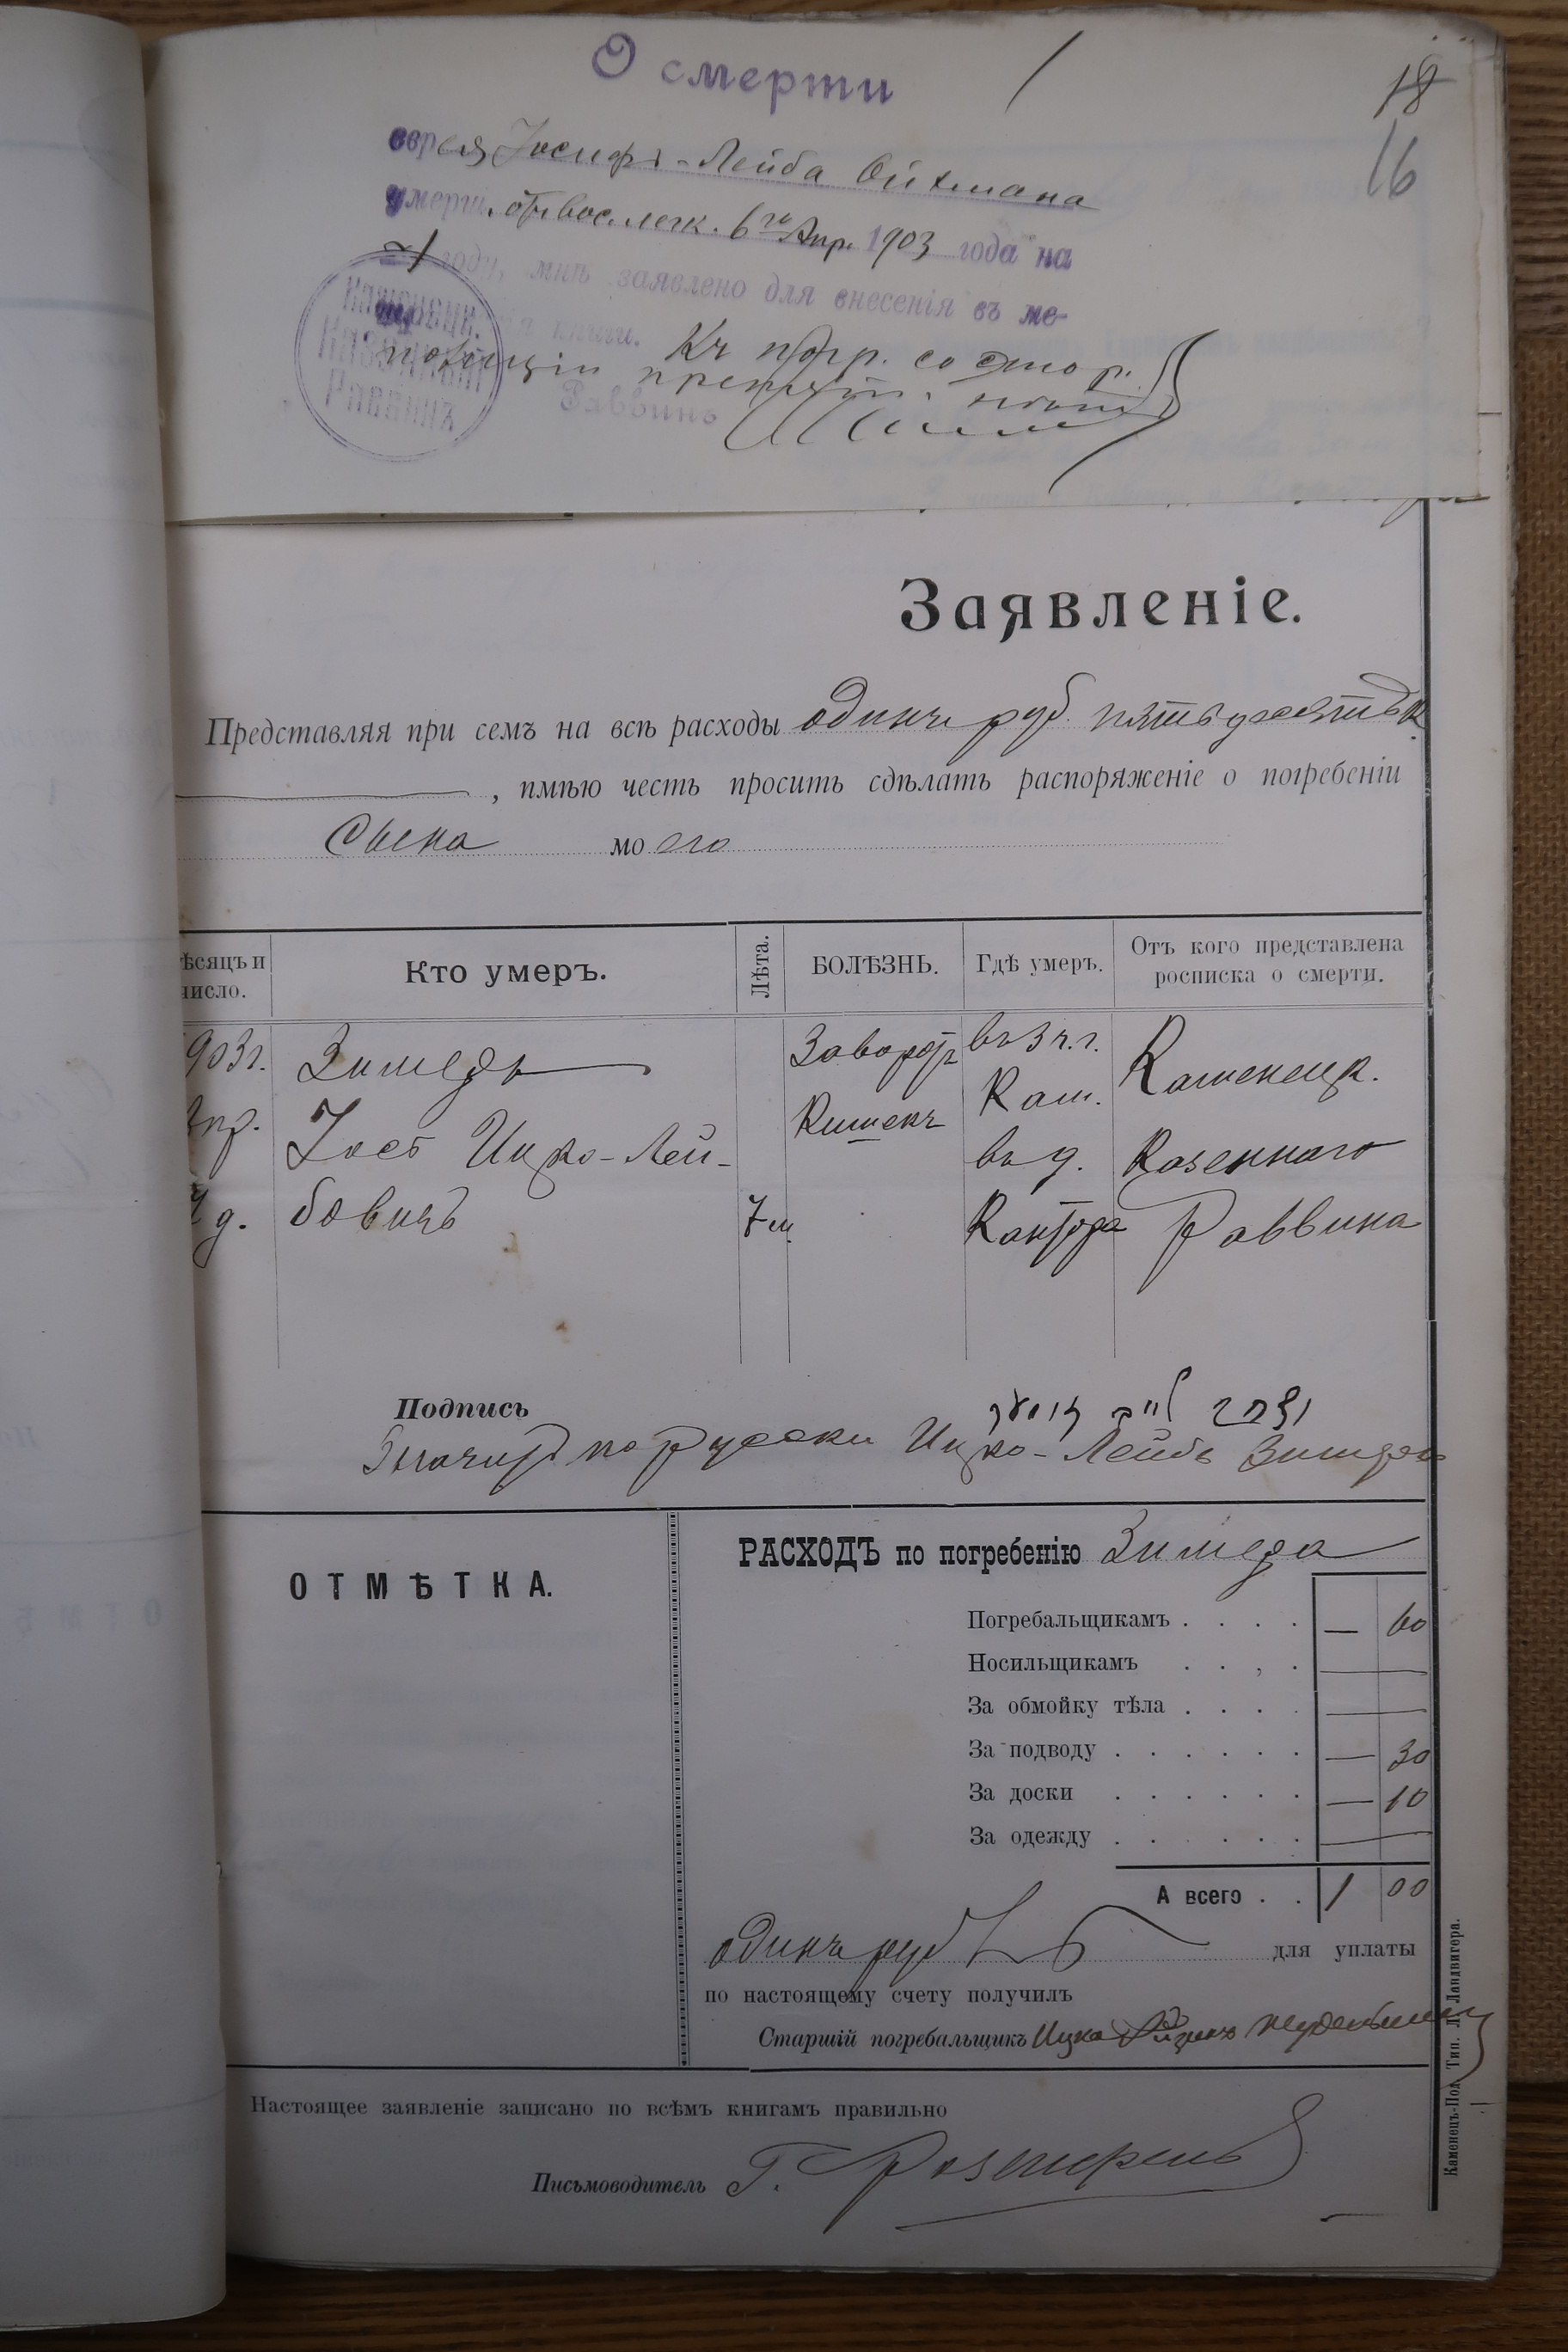 О смерти
18
16
еврея Іосифъ-Лейба Ойхмана
умерш. от вос. легк. 6го Апр. 1903 года на
году, мнѣ заявлено для внесенія въ ме-
книги.
Къ погр. со стор.
полиціи препятст.
Раввинъ
Каменецк.
Казенный
Раввинъ
Заявленіе.
Представляя при семъ на всѣ расходы одинъ руб. пятьдесятъ к.
, имѣю честь просить сдѣлать распоряженіе о погребеніи
Сына моего
ѣсяцъ и число.
Кто умеръ.
Лѣта.
БОЛѢЗНЬ.
Гдѣ умеръ.
Отъ кого представлена росписка о смерти.
903г.
Апр.
д.
Зимедъ
Іосъ Ицко-Лей-
бовичъ
7 м.
Заворотъ
Кишекъ
въ 3 ч. г.
Кам.
въ д.
Каменецк.
Казеннаго
Раввина
Подпись
Значитъ по русски Ицко-Лейбъ Зимедъ
ОТМѢТКА.
РАСХОДЪ по погребенію Зимеда
Погребальщикамъ . . . . — 60
Носильщикамъ . . , .
За обмойку тѣла . . . .
За подводу . . . . . . — 30
За доски . . . . . . — 10
За одежду . . . . . .
А всего . . 1 00
одинъ руб для уплаты
по настоящему счету получилъ
Старшій погребальщикъ Ицко
Настоящее заявленіе записано по всѣмъ книгамъ правильно
Письмоводитель Г.
Каменецъ-Под. Тип. Л. Ландвигера.